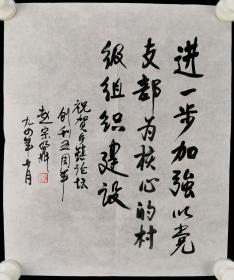 进一步加強以党
支部为核心的村
级组织建设
祝贺乡镇论坛
创刊五周年
赵宗鼐
九四年十月